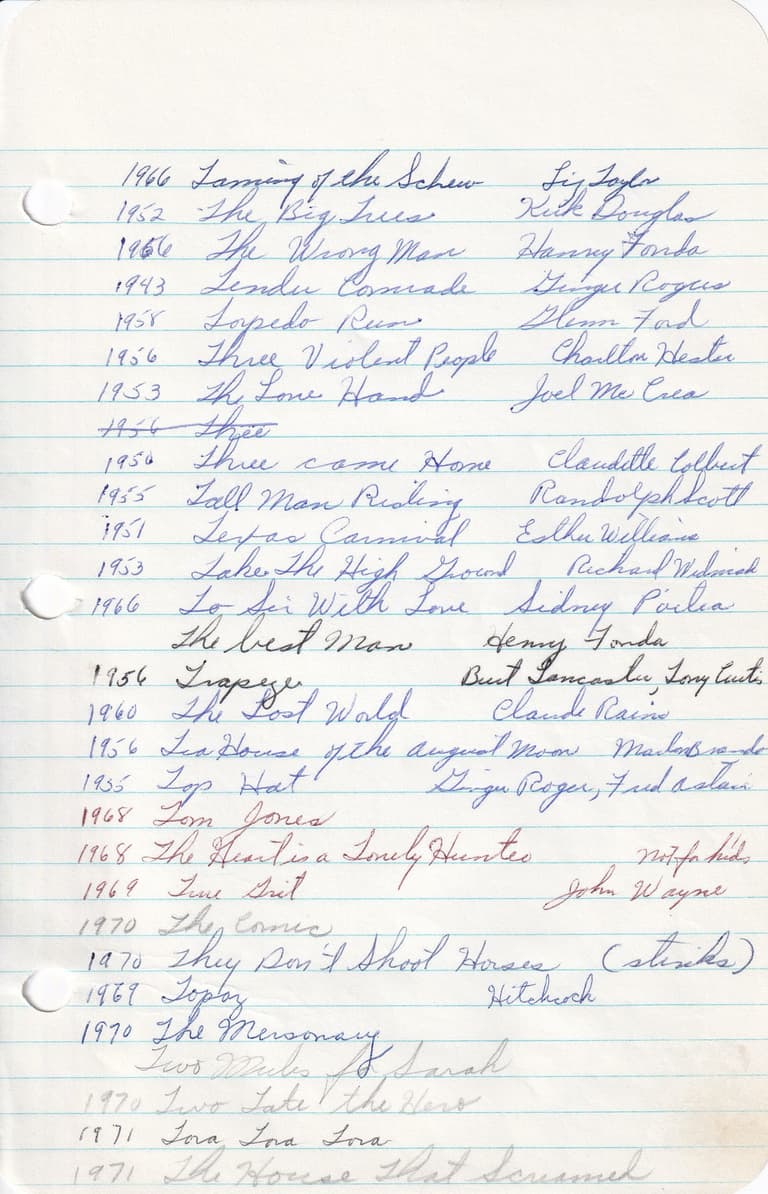 1966 Taming of the Schew Liz Taylor
1952 The Big Trees Kirk Douglas
1956 The Wrong Man Hanry Fonda
1943 Tender Comrade Ginger Rogers
1958 Torpedo Run Glenn Ford
1956 Three Violent People Charlton Hester
1953 The Lone Hand Joel Mc Crea
1956 Three
1950 Three came Home Claudette Colbert
1955 Tall Man Riding Randolph Scott
1951 Texas Carnival Esther Williams
1953 Take The High Ground Richard Widmark
1966 To Sir With Love Sidney Poitia
The best Man Henry Fonda
1956 Trapeze Burt Lancaster, Tony Curtis
1960 The Lost World Claude Rains
1956 Tea House of the august Moon Marlon Brando
1935 Top Hat Ginger Roger, Fred Astair
1968 Tom Jones
1968 The Heart is a Lonely Hunter not for kids
1969 True Grit John Wayne
1970 The Comic
1970 They Don't Shoot Horses (stinks)
1969 Topaz Hitchcock
1970 The Mersonary
Two Mules for Sarah
1970 Two Late the Hero
1971 Tora Tora Tora
1971 The House That Screamed